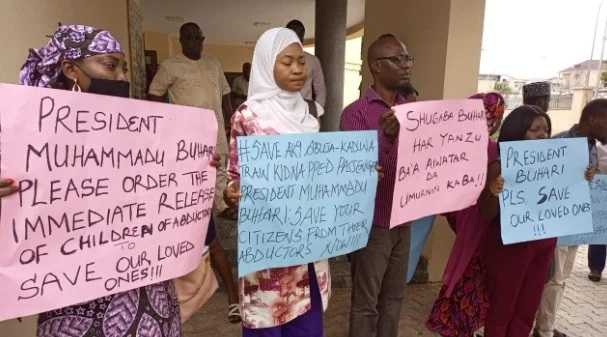 PRESIDENT
MUHAMMADU BUHARI
PLEASE ORDER THE
IMMEDIATE RELEASE
OF CHILDREN OF ABDUCTORS
TO
SAVE OUR LOVED
ONES!!!
#SAVE AK9 ABUJA-KADUNA
TRAIN KIDNAPPED PASSENGER
PRESIDENT MUHAMMADU
BUHARI: SAVE YOUR
CITIZENS FROM THEIR
ABDUCTORS NOW!!!
SHUGABA BUHARI
HAR YANZU
BA'A AIWATAR
DA
UMURNIN KA BA!!
PRESIDENT
BUHARI
PLS SAVE
OUR LOVED ONES
!!!